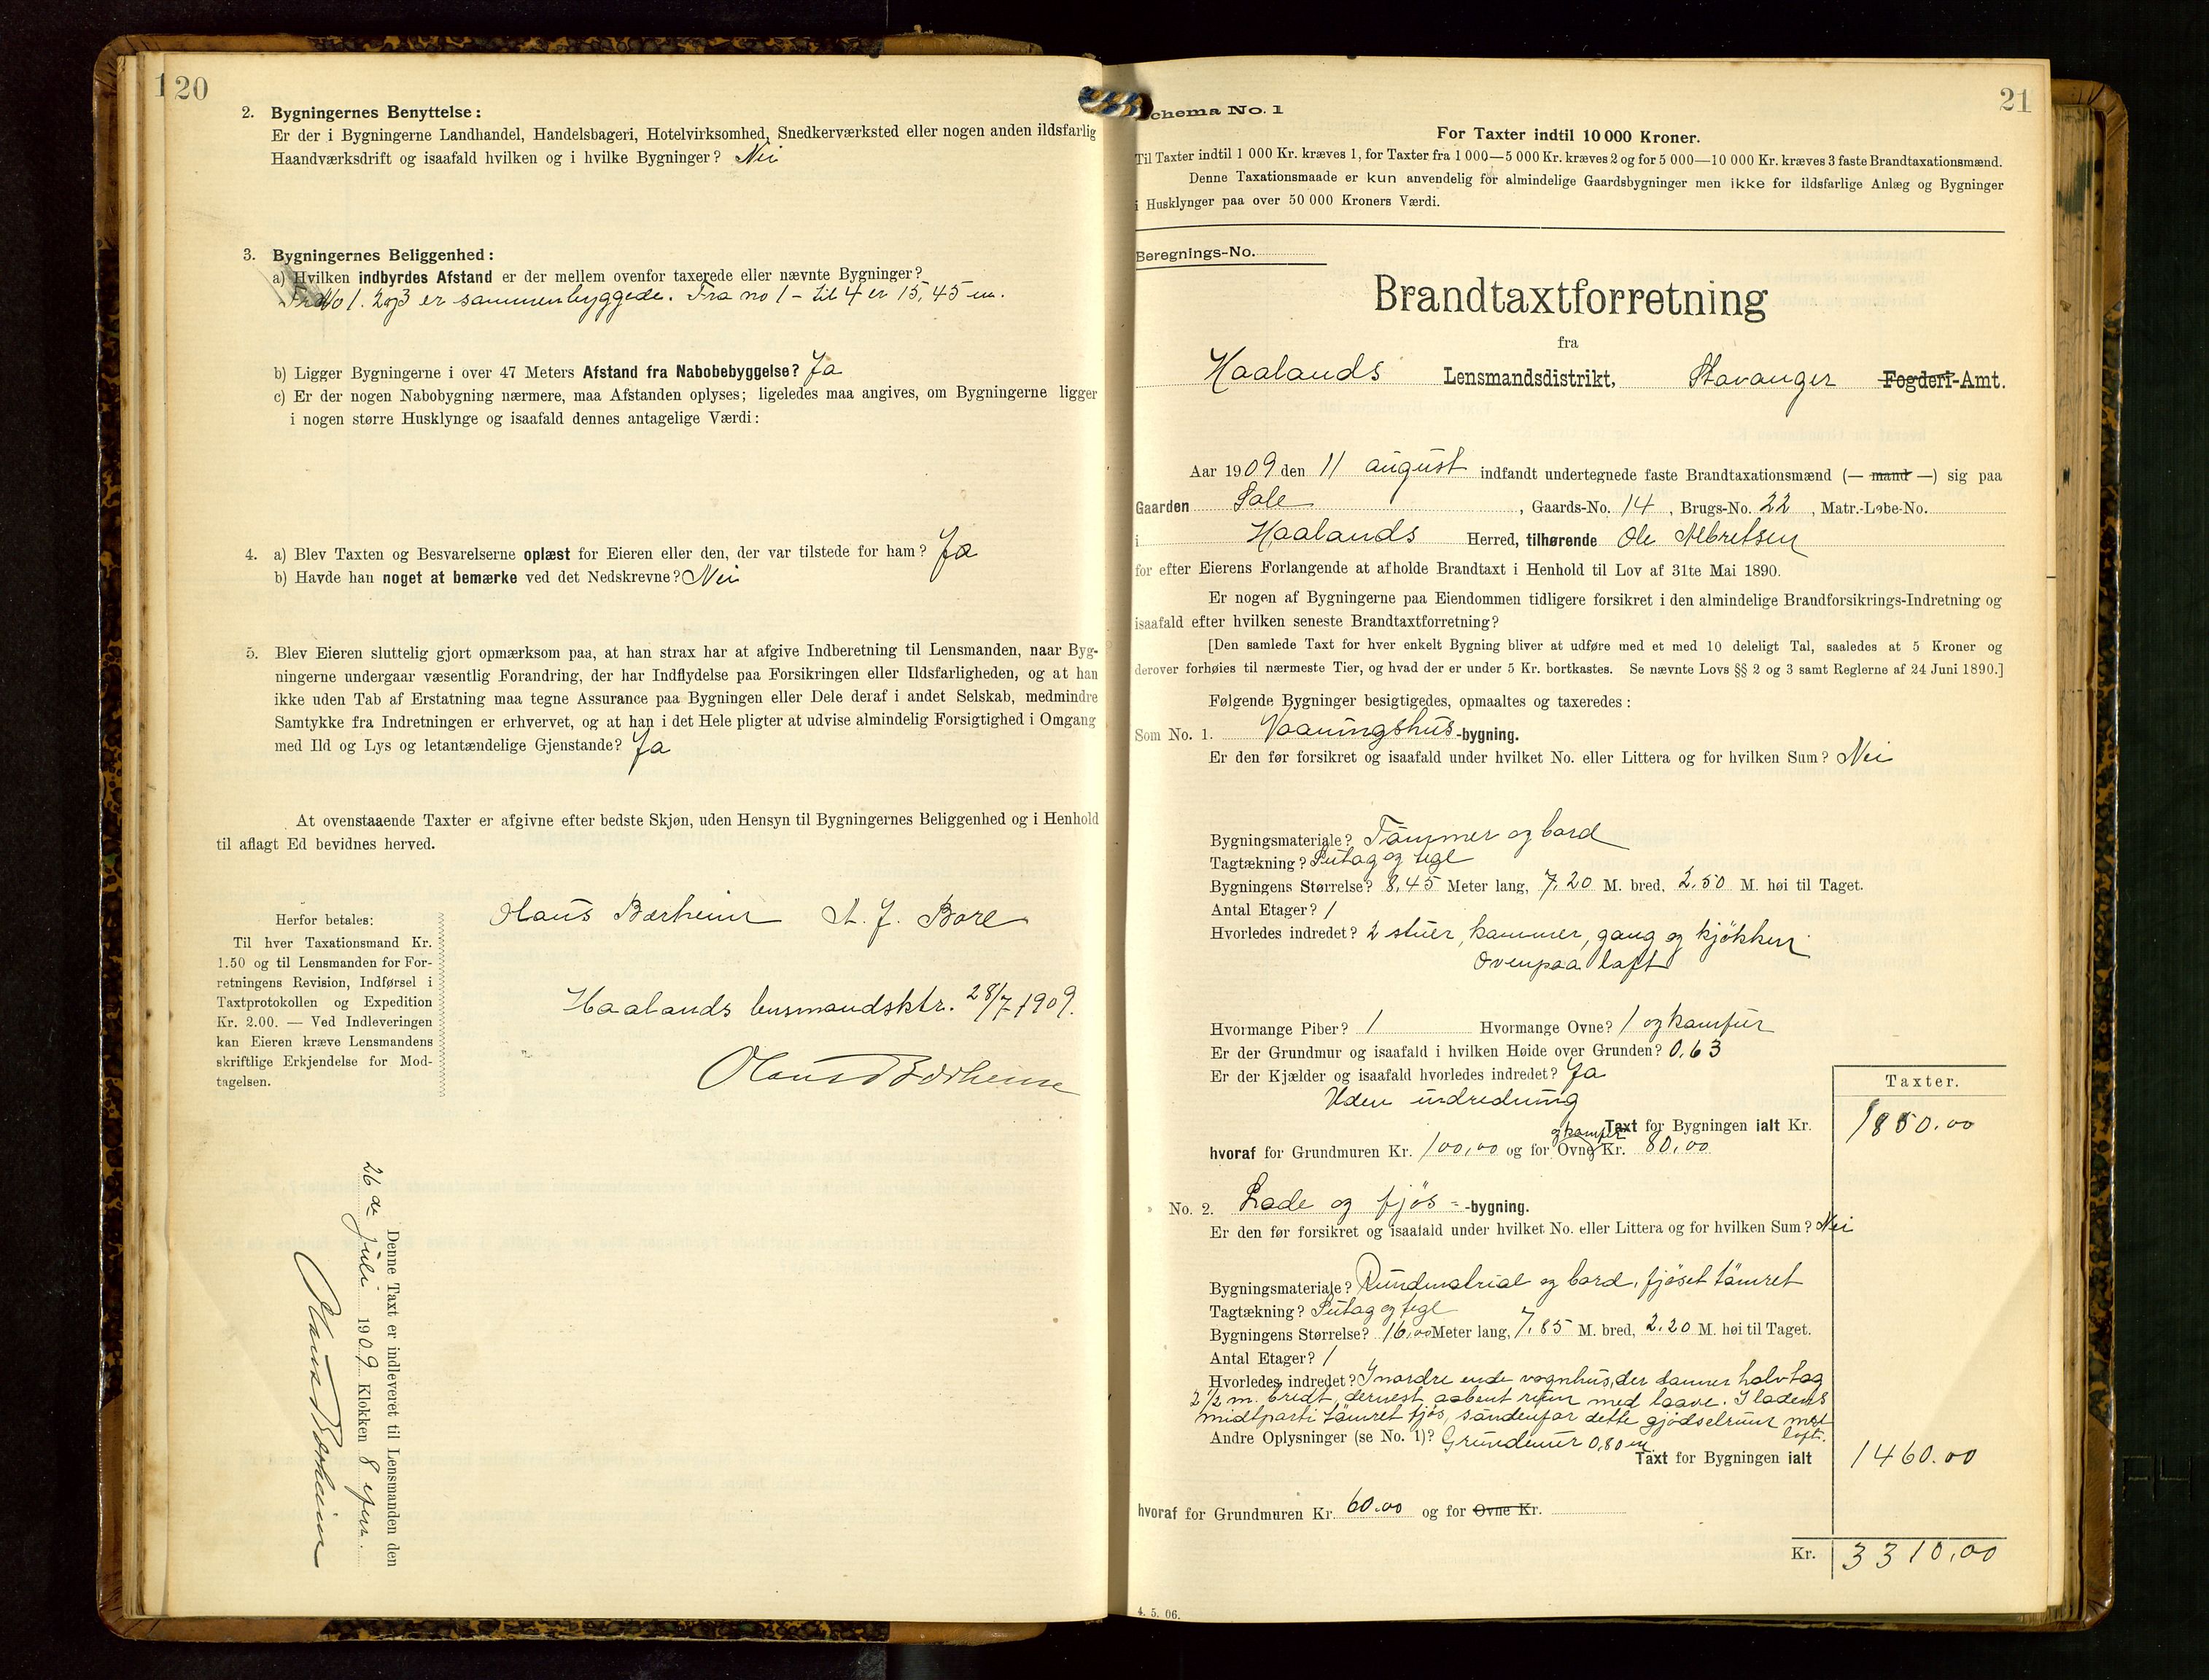 120
2. Bygningernes Benyttelse:
Er der i Bygningerne Landhandel, Handelsbageri, Hotelvirksomhed, Snedkerværksted eller nogen anden ildsfarlig
Haandværksdrift og isaafald hvilken og i hvilke Bygninger? Nei
3. Bygningernes Beliggenhed:
a) Hvilken indbyrdes Afstand er der mellem ovenfor taxerede eller nævnte Bygninger?
No 1. 2 og 3 er sammenbyggede. Fra no 1 - til 4 er 15,45 m.
b) Ligger Bygningerne i over 47 Meters Afstand fra Nabobebyggelse? Ja
c) Er der nogen Nabobygning nærmere, maa Afstanden oplyses; ligeledes maa angives, om Bygningerne ligger
i nogen større Husklynge og isaafald dennes antagelige Værdi:
4. a) Blev Taxten og Besvarelserne oplæst for Eieren eller den, der var tilstede for ham? Ja
b) Havde han noget at bemærke ved det Nedskrevne? Nei
5. Blev Eieren sluttelig gjort opmærksom paa, at han strax har at afgive Indberetning til Lensmanden, naar Byg-
ningerne undergaar væsentlig Forandring, der har Indflydelse paa Forsikringen eller Ildsfarligheden, og at han
ikke uden Tab af Erstatning maa tegne Assurance paa Bygningen eller Dele deraf i andet Selskab, medmindre
Samtykke fra Indretningen er erhvervet, og at han i det Hele pligter at udvise almindelig Forsigtighed i Omgang
med Ild og Lys og letantændelige Gjenstande? Ja
At ovenstaaende Taxter er afgivne efter bedste Skjøn, uden Hensyn til Bygningernes Beliggenhed og i Henhold
til aflagt Ed bevidnes herved.
Olaus Børheim A. J. Bore
Herfor betales:
Til hver Taxationsmand Kr.
1.50 og til Lensmanden for For-
retningens Revision, Indførsel i
Taxtprotokollen og Expedition
Kr. 2.00. — Ved Indleveringen
kan Eieren kræve Lensmandens
skriftlige Erkjendelse for Mod-
tagelsen.
Haalands lensmandsktr. 28/7 1909.
Olaus Børheim
Denne Taxt er indleveret til Lensmanden den
26 de Juli 1909 Klokken 8 efterm.
Olaus Børheim
21
Schema No. 1
For Taxter indtil 10 000 Kroner.
Til Taxter indtil 1 000 Kr. kræves 1, for Taxter fra 1 000—5 000 Kr. kræves 2 og for 5 000—10 000 Kr. kræves 3 faste Brandtaxationsmænd.
Denne Taxationsmaade er kun anvendelig for almindelige Gaardsbygninger men ikke for ildsfarlige Anlæg og Bygninger
i Husklynger paa over 50 000 Kroners Værdi.
Beregnings-No.
Brandtaxtforretning
fra
Haalands Lensmandsdistrikt, Stavanger Fogderi-Amt.
Aar 1909 den 11 august indfandt undertegnede faste Brandtaxationsmænd (— mand —) sig paa
Gaarden Sole, Gaards-No. 14, Brugs-No. 22, Matr.-Løbe-No.
i Haalands Herred, tilhørende Ole Albretsen
for efter Eierens Forlangende at afholde Brandtaxt i Henhold til Lov af 31te Mai 1890.
Er nogen af Bygningerne paa Eiendommen tidligere forsikret i den almindelige Brandforsikrings-Indretning og
isaafald efter hvilken seneste Brandtaxtforretning?
[Den samlede Taxt for hver enkelt Bygning bliver at udføre med et med 10 deleligt Tal, saaledes at 5 Kroner og
derover forhøies til nærmeste Tier, og hvad der er under 5 Kr. bortkastes. Se nævnte Lovs §§ 2 og 3 samt Reglerne af 24 Juni 1890.]
Følgende Bygninger besigtigedes, opmaaltes og taxeredes:
Som No. 1. Vaaningshus-bygning.
Er den før forsikret og isaafald under hvilket No. eller Littera og for hvilken Sum? Nei
Bygningsmateriale? Tømmer og bord
Tagtækning? Sutag og tegl
Bygningens Størrelse? 8,45 Meter lang, 7,20 M. bred, 2,50 M. høi til Taget.
Antal Etager? 1
Hvorledes indredet? 2 stuer, kammer, gang og kjøkken
Ovenpaa loft
Hvormange Piber? 1 Hvormange Ovne? 1 og komfur
Er der Grundmur og isaafald i hvilken Høide over Grunden? 0,63
Er der Kjælder og isaafald hvorledes indredet? Ja
Uden indredning
Taxter.
Taxt for Bygningen ialt Kr. 1850.00
hvoraf for Grundmuren Kr. 100,00 og for Ovne og komfur Kr. 80,00
No. 2. Lade og fjøs-bygning.
Er den før forsikret og isaafald under hvilket No. eller Littera og for hvilken Sum? Nei
Bygningsmateriale? Rundmatrial og bord, fjøset tømret
Tagtækning? Sutag og tegl
Bygningens Størrelse? 16,00 Meter lang, 7,85 M. bred, 2.20 M. høi til Taget.
Antal Etager? 1
Hvorledes indredet? I nordre ende vognhus, der danner halvtag
2 1/2 m. bredt, dernest aabent rum med laave. I ladens
midtparti tømret fjøs, søndenfor dette gjødselrum med
loft.
Andre Oplysninger (se No. 1)? Grundmur 0,80 m.
Taxt for Bygningen ialt 1460.00
hvoraf for Grundmuren Kr. 60.00 og for Ovne Kr.
Kr. 3310,00
4. 5. 06.